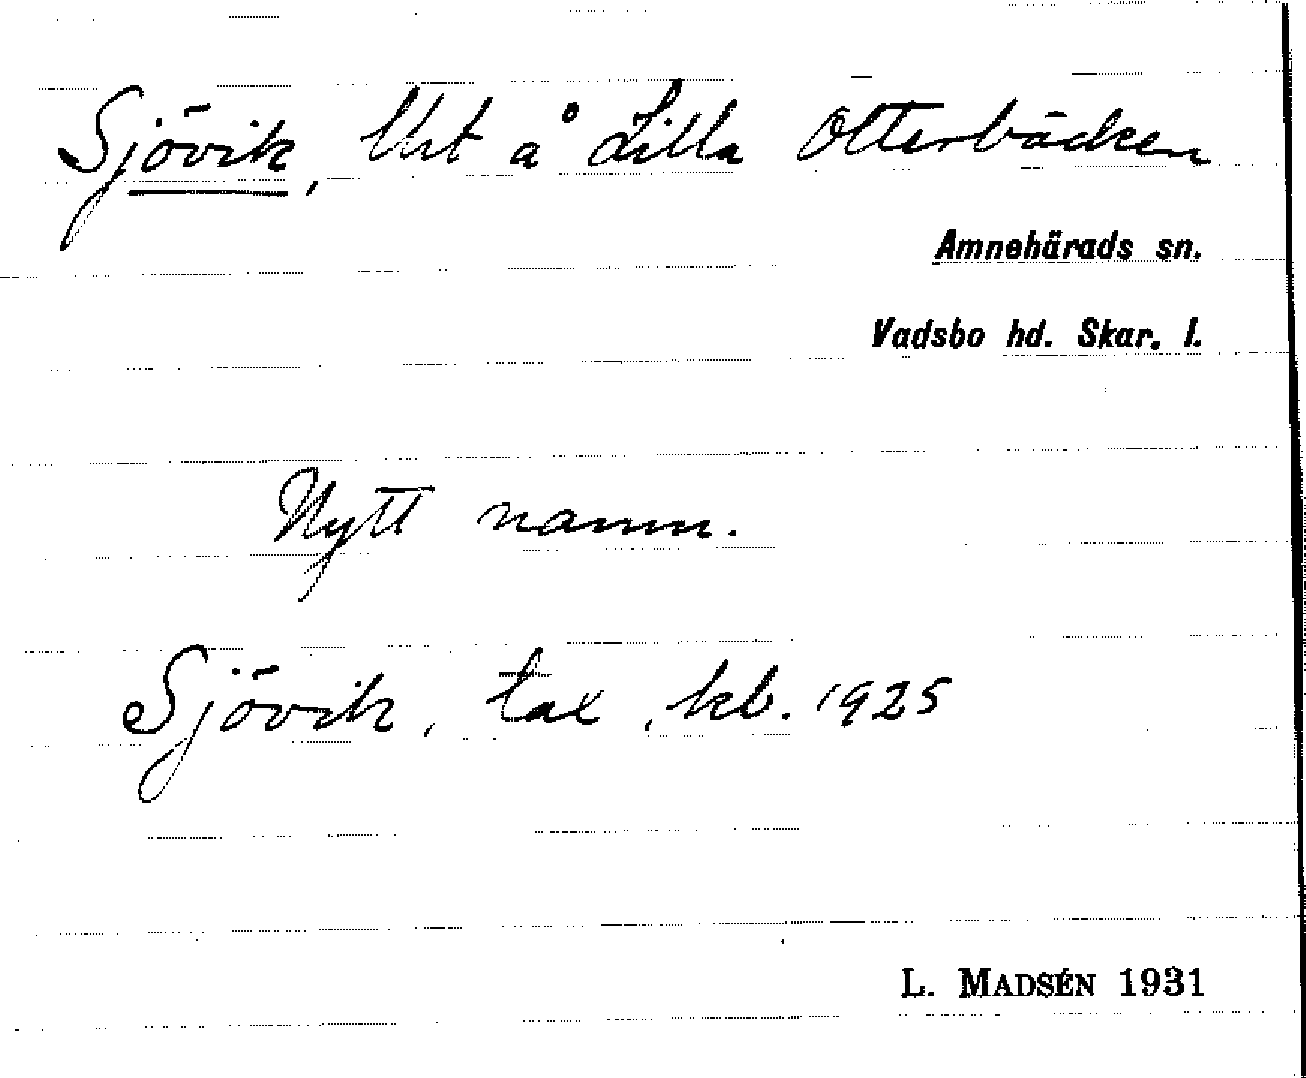 Sjövik, lht å Lilla Otterbäcken
Amnehärads sn.
Vadsbo hd. Skar. l.
Nytt namn.
Sjövik, tax, kb. 1925
L. MADSÉN 1931